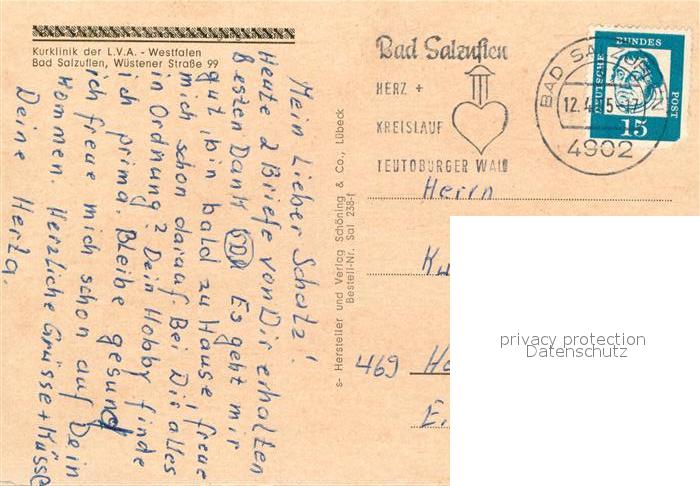 Kurklinik der L.V.A. - Westfalen
Bad Salzuflen, Wüstener Straße 99
Mein Lieber Schatz!
Heute 2 Briefe von Dir erhalten
Besten Dank Es geht mir
gut, bin bald zu Hause, freue
mich schon darauf. Bei Dir alles
in Ordnung? Dein Hobby finde
ich prima. Bleibe gesund
ich freue mich schon auf Dein
Kommen. Herzliche Grüsse + Küsse
Deine Herta.
s- Hersteller und Verlag Schöning & Co., Lübeck
Bestell-Nr. Sal 238-f
Bad Salzuflen
HERZ +
KREISLAUF
TEUTOBURGER WALD
BAD SALZUFLEN
12.4.65-17
4902
DEUTSCHE
BUNDES
POST
15
Herrn
Ku
469 He
E.
privacy protection
Datenschutz